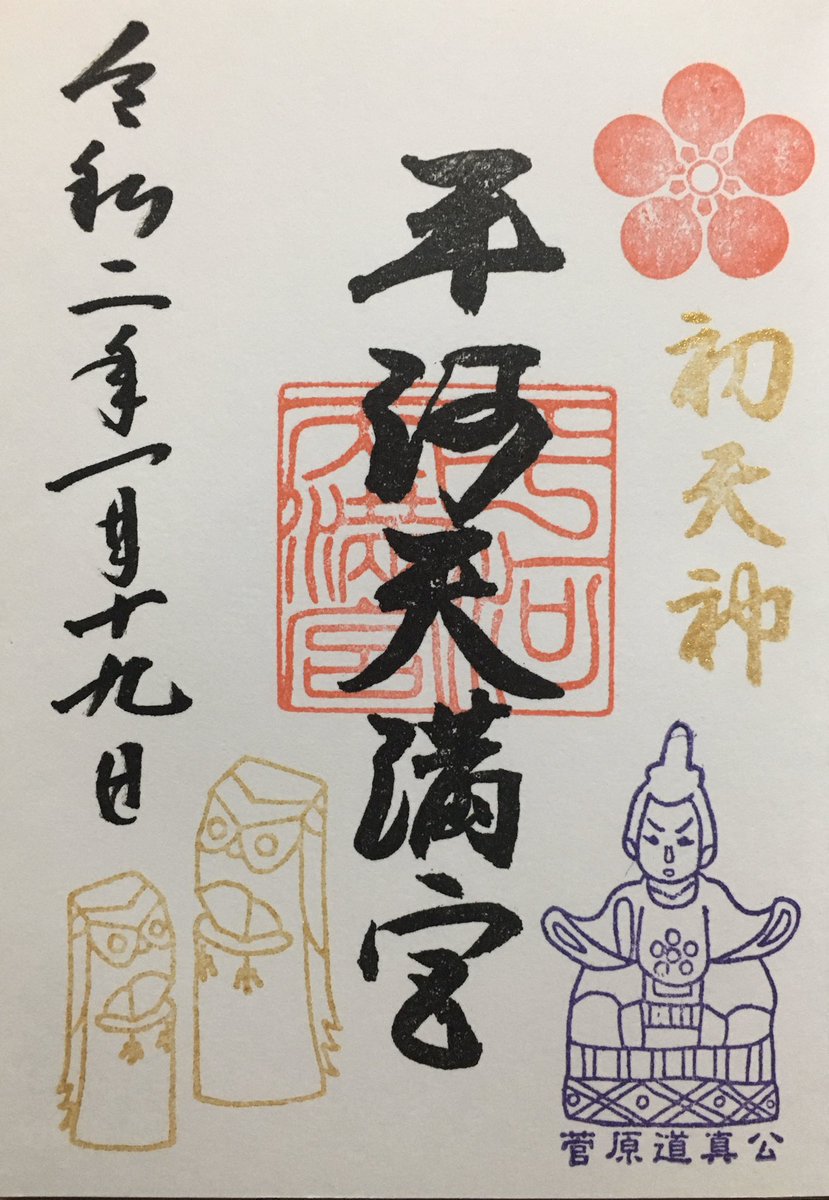 初天神
平河天満宮
平河天満宮
令和二年一月十九日
菅原道真公